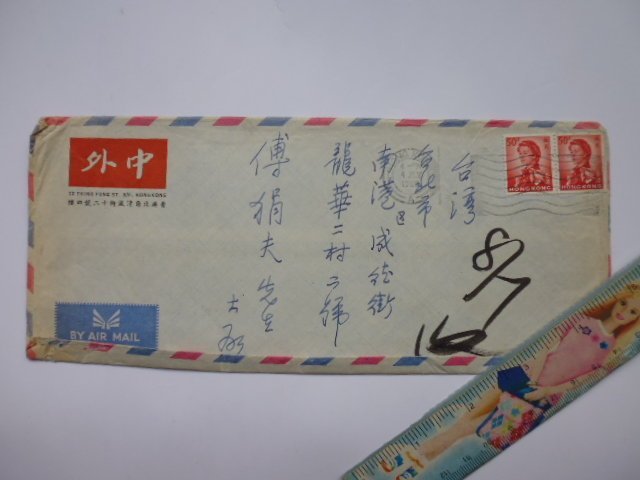 外中
72 TSING FUNG ST. 4/F., HONGKONG
香港北角清風街十六號四樓
台灣
台北市
南港區成德街
龍華二村二號
傅狷夫先生
大啟
BY AIR MAIL
50¢
HONG KONG
50¢
HONG KONG